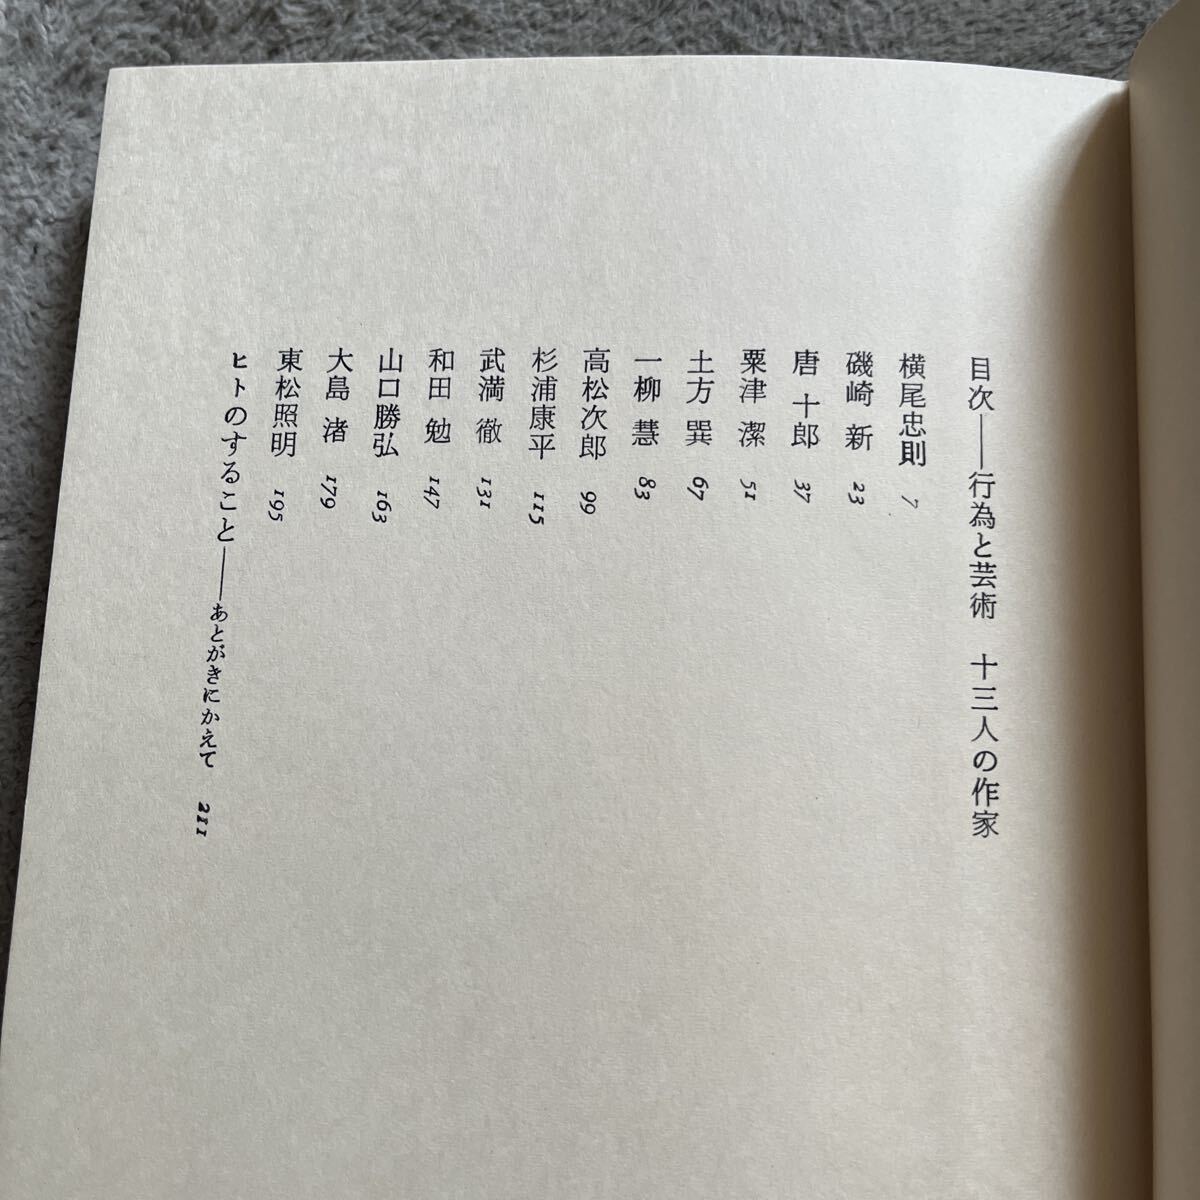 目次——行為と芸術　十三人の作家
横尾忠則 7
磯崎 新 23
唐 十郎 37
粟津 潔 51
土方 巽 67
一柳 慧 83
高松次郎 99
杉浦康平 115
武満 徹 131
和田 勉 147
山口勝弘 163
大島 渚 179
東松照明 195
ヒトのすること——あとがきにかえて 211